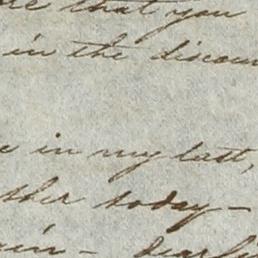 that you
in the discou
in my last,
ther today -